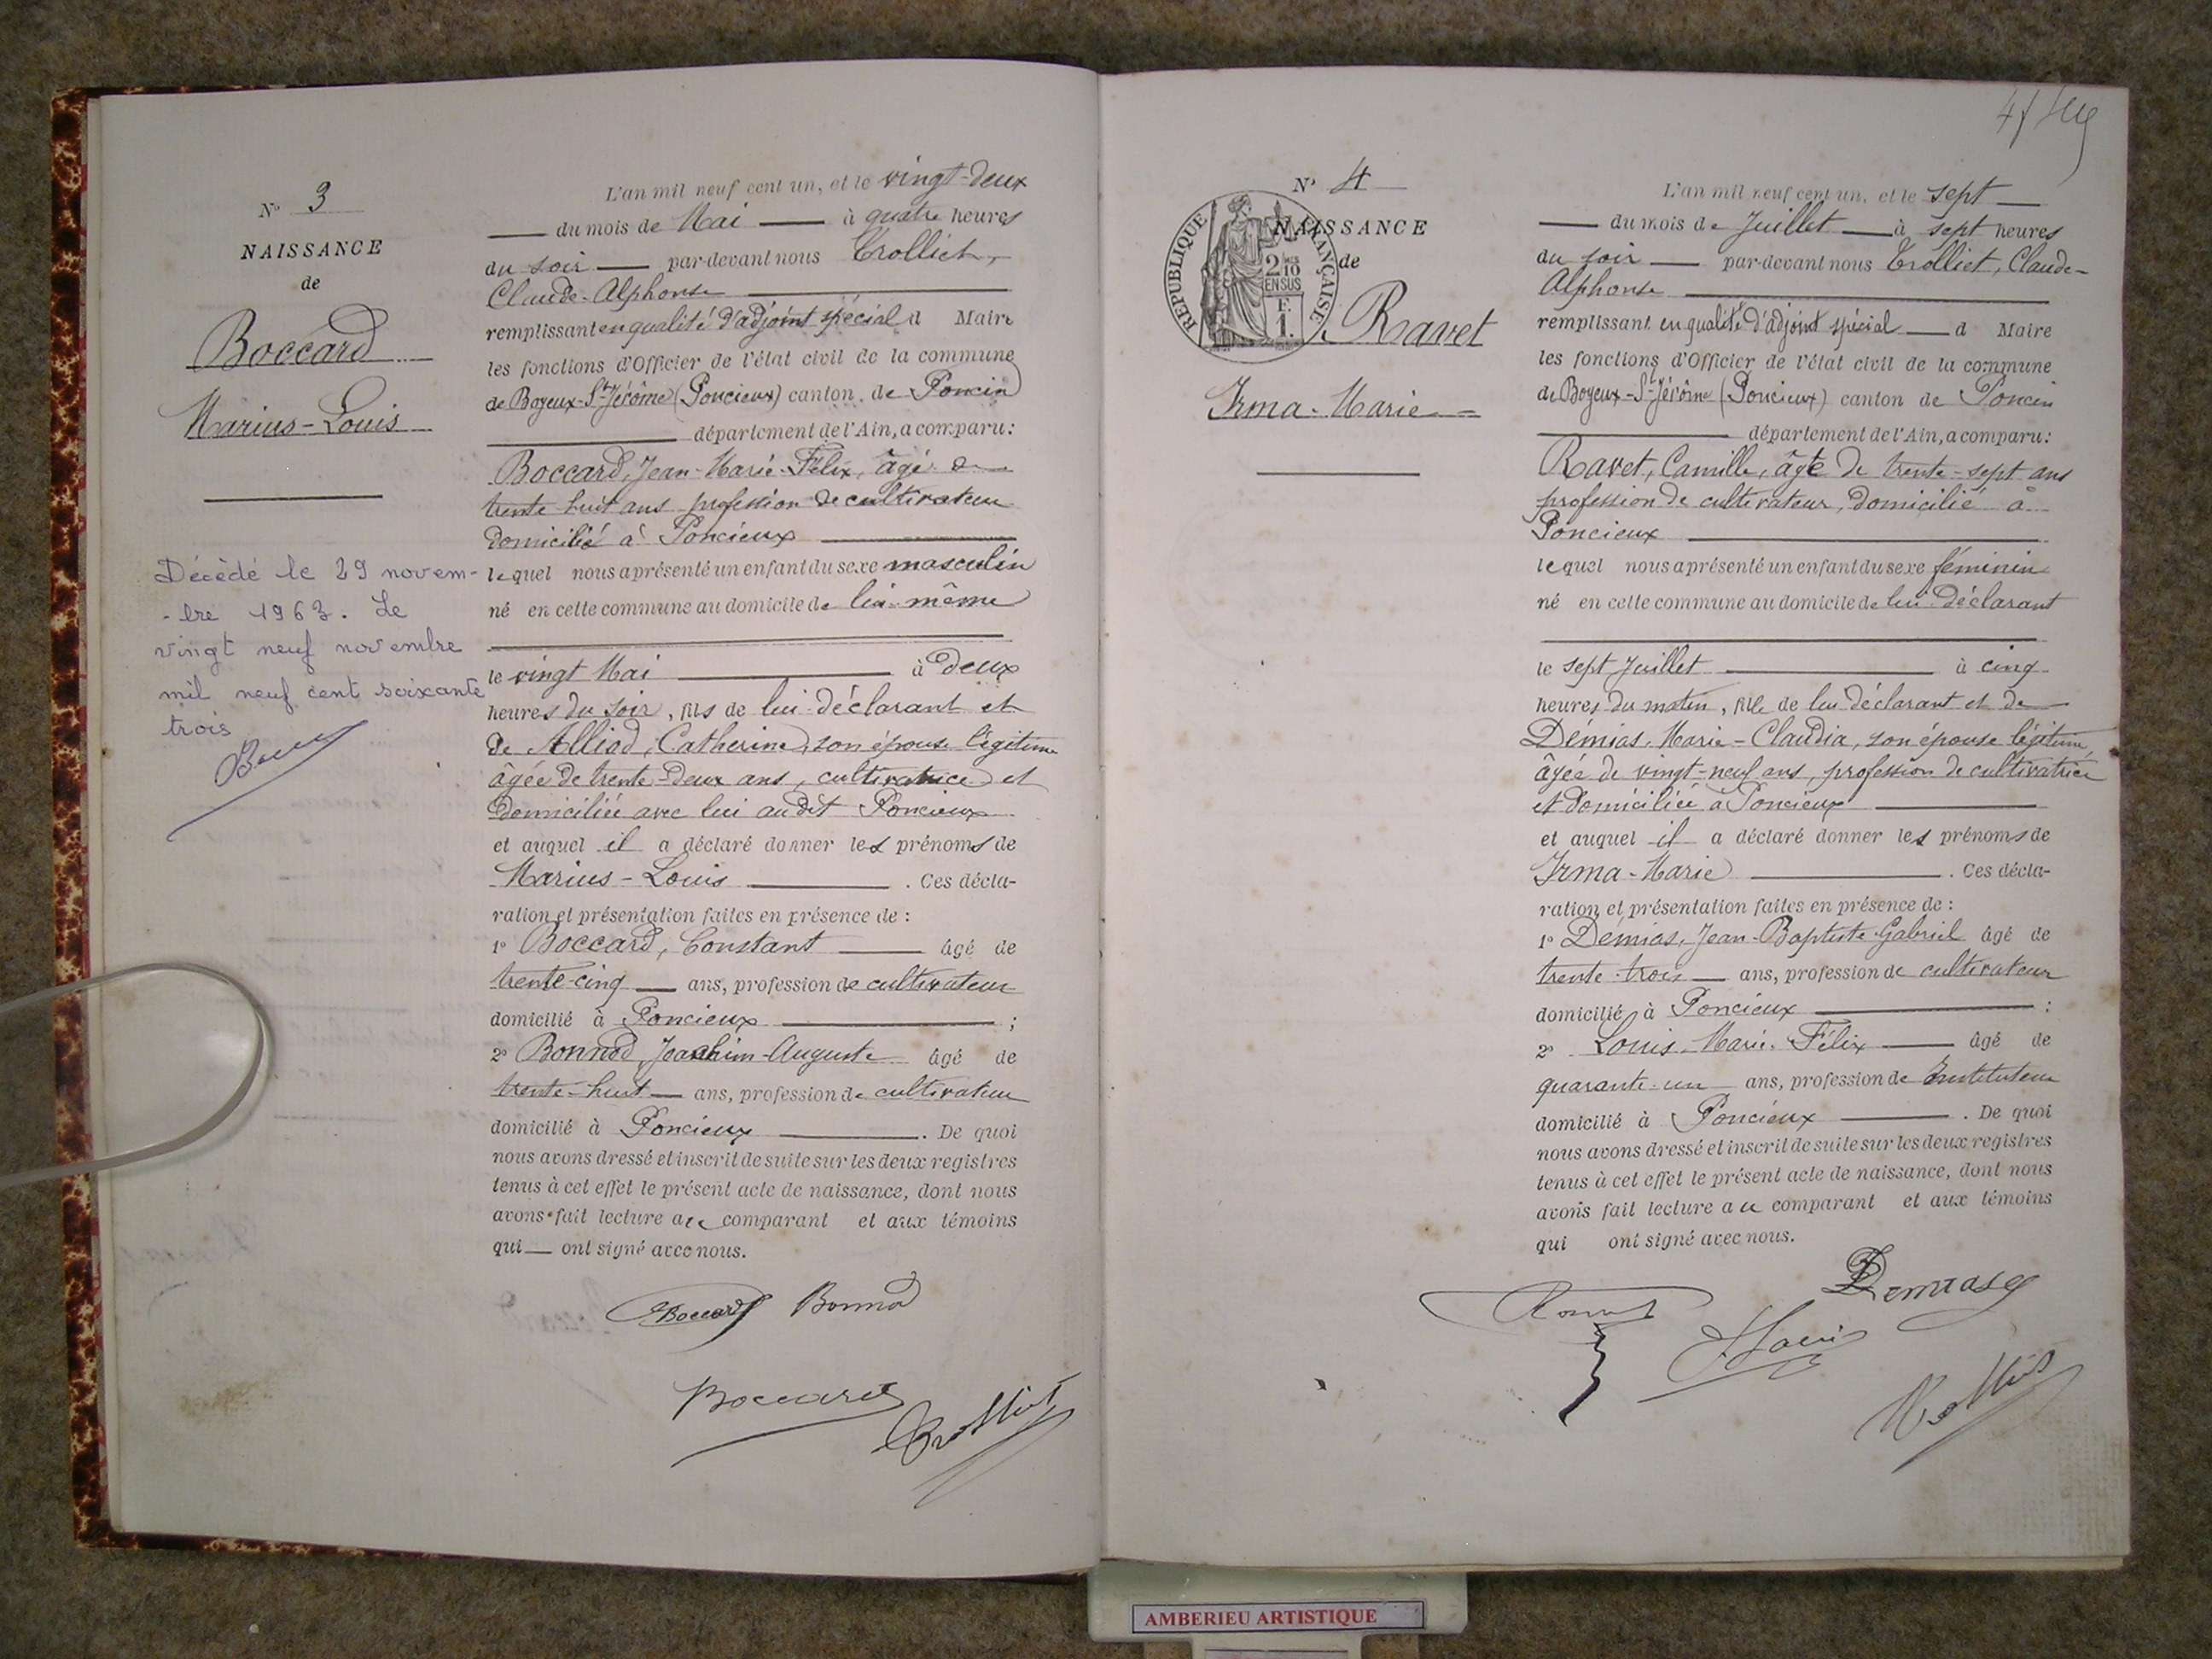 N° 3
NAISSANCE
de
Boccard
Marius-Louis
Décédé le 29 novem-
-bre 1963. Le
vingt neuf novembre
mil neuf cent soixante
trois
L'an mil neuf cent un, et le vingt-deux
du mois de Mai à quatre heures
du soir par-devant nous Trolliet,
Claude-Alphonse
remplissant en qualité d'adjoint spécial d Maire
les fonctions d'Officier de l'état civil de la commune
de Boyeux-St-Jérôme (Poncieux) canton de Poncin
département de l'Ain, a comparu:
Boccard, Jean-Marie-Félix, âgé de
trente-huit ans profession de cultivateur
domicilié à Poncieux
lequel nous a présenté un enfant du sexe masculin
né en cette commune au domicile de lui-même
le vingt Mai à deux
heures du soir, fils de lui déclarant et
de Alliod, Catherine, son épouse légitime
âgée de trente-deux ans, cultivatrice et
domiciliée avec lui audit Poncieux
et auquel il a déclaré donner les prénoms de
Marius-Louis . Ces décla-
ration et présentation faites en présence de :
1° Boccard, Constant âgé de
trente-cinq ans, profession de cultivateur
domicilié à Poncieux ;
2° Bonnod, Joachim-Auguste âgé de
trente-huit ans, profession de cultivateur
domicilié à Poncieux . De quoi
nous avons dressé et inscrit de suite sur les deux registres
tenus à cet effet le présent acte de naissance, dont nous
avons fait lecture au comparant et aux témoins
qui ont signé avec nous.
Boccard Bonnod
Boccard Trolliet
N° 4
NAISSANCE
de
RÉPUBLIQUE FRANÇAISE
2/10
EN SUS
F.
1.
Ravet
Irma-Marie
L'an mil neuf cent un, et le sept
du mois de Juillet à sept heures
du soir par-devant nous Trolliet, Claude-
Alphonse
remplissant en qualité d'adjoint spécial d Maire
les fonctions d'Officier de l'état civil de la commune
de Boyeux-St-Jérôme (Poncieux) canton de Poncin
département de l'Ain, a comparu:
Ravet, Camille, âgé de trente-sept ans
profession de cultivateur, domicilié à
Poncieux
lequel nous a présenté un enfant du sexe féminin
né en cette commune au domicile de lui déclarant
le sept Juillet à cinq
heures du matin, fille de lui déclarant et de
Démias, Marie-Claudia, son épouse légitime,
âgée de vingt-neuf ans, profession de cultivatrice
et domiciliée à Poncieux
et auquel il a déclaré donner les prénoms de
Irma-Marie . Ces décla-
ration et présentation faites en présence de :
1° Demias, Jean-Baptiste-Gabriel âgé de
trente-trois ans, profession de cultivateur
domicilié à Poncieux ;
2° Louis-Marie-Félix âgé de
quarante-un ans, profession de Instituteur
domicilié à Poncieux . De quoi
nous avons dressé et inscrit de suite sur les deux registres
tenus à cet effet le présent acte de naissance, dont nous
avons fait lecture au comparant et aux témoins
qui ont signé avec nous.
Demias
Ravet
Louis
Trolliet
AMBERIEU ARTISTIQUE